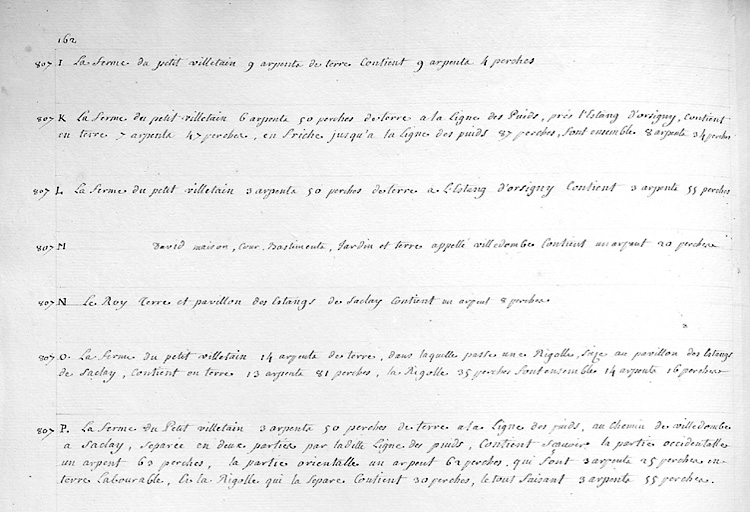 162
807 I La ferme du petit villetain 9 arpents de terre Contient 9 arpents 4 perches
807 K La ferme du petit villetain 6 arpents 50 perches de terre a la Ligne des Puids, près l'Estang d'orsigny, Contient
en terre 7 arpents 47 perches, en friche jusqu'a la Ligne des puids 87 perches, font ensemble 8 arpents 34 perches
807 L La ferme du petit villetain 3 arpents 50 perches de terre a L'Estang d'orsigny Contient 3 arpents 55 perches
807 M David maison, Cour, Bastiments, Jardin et terre appellé villedombe Contient un arpent 20 perches
807 N Le Roy Terre et pavillon des Estangs de Saclay Contient un arpent 8 perches
807 O. La ferme du petit villetain 14 arpents de terre, dans laquelle passe une Rigolle, size au pavillon des Estangs
de Saclay, Contient en terre 13 arpents 81 perches, la Rigolle 35 perches font ensemble 14 arpents 16 perches
807 P. La ferme du Petit villetain 3 arpents 50 perches de terre a la Ligne des puids, au Chemin de villedombe
a Saclay, separée en deux parties par ladette Ligne des puids, Contient Sçavoir la partie occidentalle
un arpent 63 perches, la partie orientalle un arpent 62 perches, qui font 3 arpents 25 perches en
terre Labourable, Et la Rigolle qui la Separe Contient 30 perches, le tout faisant 3 arpents 55 perches.